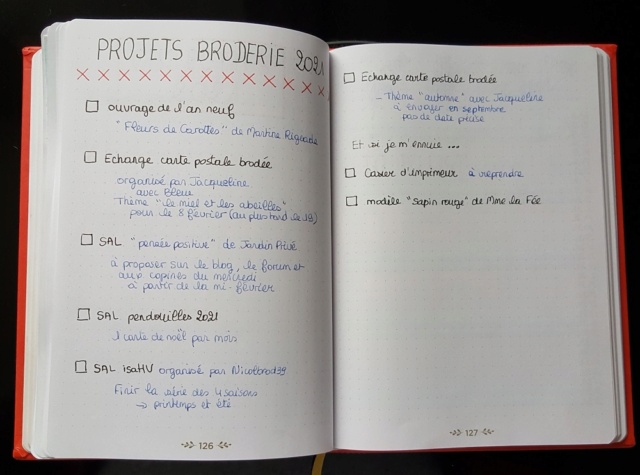 PROJETS BRODERIE 2021
ouvrage de l'an neuf
"Fleurs de Carottes" de Martine Rigeade
Echange carte postale brodée
organisé par Jacqueline
avec Bleue
Thème "le miel et les abeilles"
pour le 8 février (au plus tard le 13)
SAL "pensée positive" de Jardin Privé
à proposer sur le blog, le forum et
aux copines du mercredi
à partir de la mi-février
SAL pendouilles 2021
1 carte de noël par mois
SAL isaHV organisé par Nicolbrod39
Finir la série des 4 saisons
→ printemps et été
126
Echange carte postale brodée
- Thème "automne" avec Jacqueline
à envoyer en septembre
pas de date précise
Et si je m'ennuie ...
Casier d'imprimeur à reprendre
modèle "sapin rouge" de Mme la Fée
127